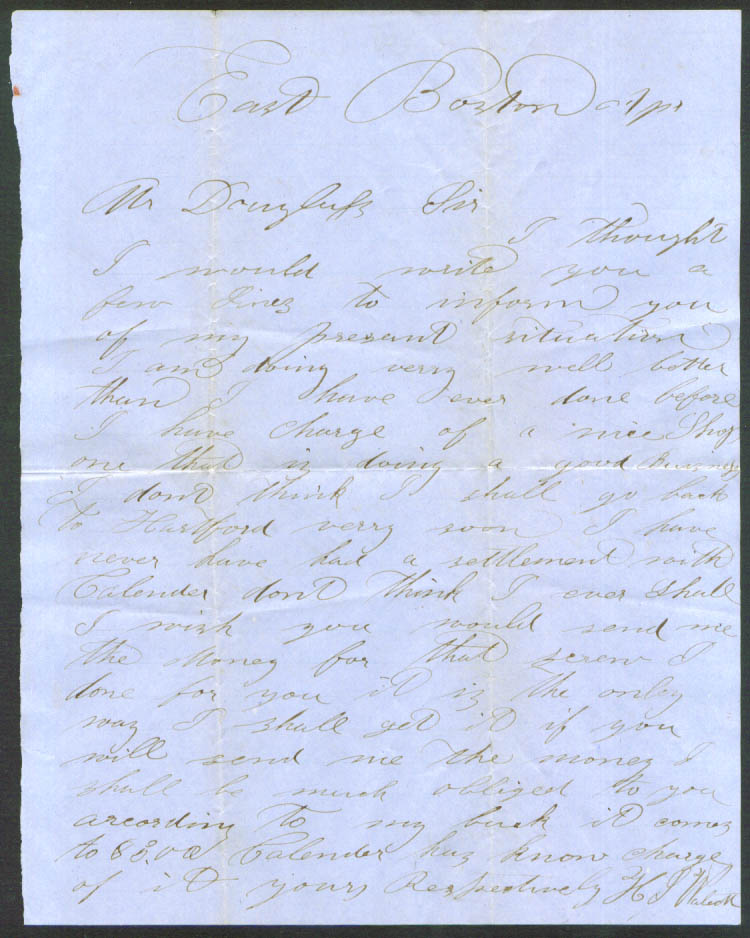 East Boston Apr
Mr Douglass Sir
I thought
I would write you a
few lines to inform you
of my present situation
I am doing verry well better
than I have ever done before
I have charge of a nice Shop
one that is doing a good business
I dont think I shall go back
to Hartford verry soon I have
never have had a settlement with
Calender dont think I ever shall
I wish you would send me
the money for that screw I
done for you it is the only
way I shall get it if you
will send me the money I
shall be much obliged to you
according to my book it comes
to Calender has know charge
of it yours Respectively H J